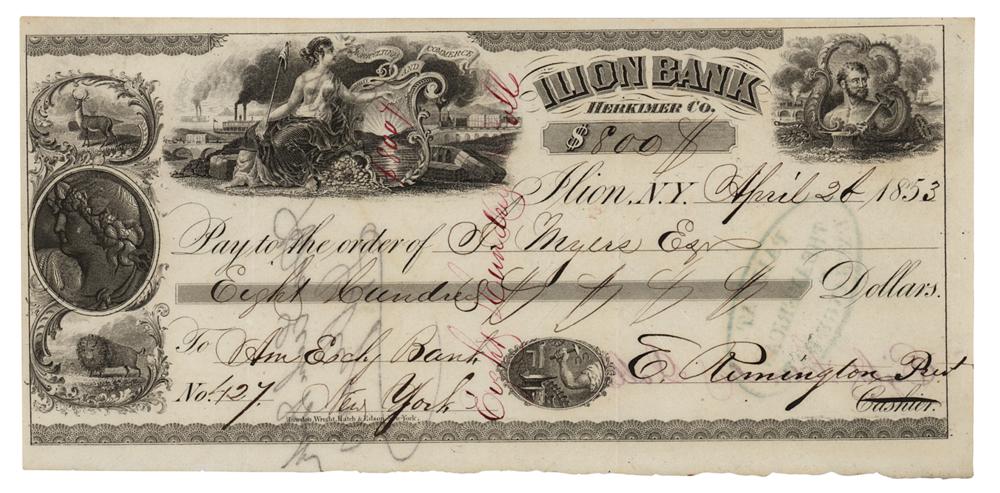 AGRICULTURE AND COMMERCE
ILION BANK
HERKIMER CO.
$ 800
Ilion, N.Y. April 26 1853
Pay to the order of S. Myers Esqr
Eight Hundred Dollars.
To Am Exch Bank
No: 427. New York
E. Remington Prest
Cashier.
Rawdon, Wright, Hatch & Edson, New York.
$800
Eight Hundred doll